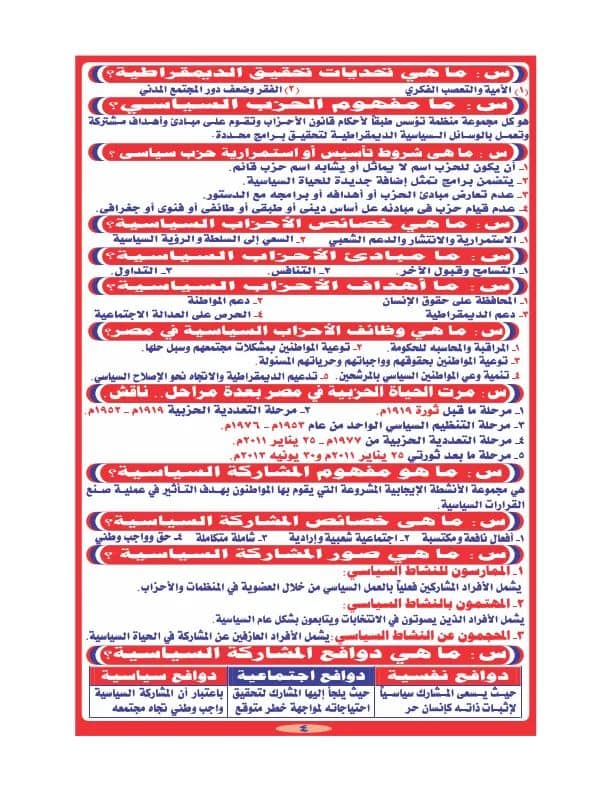 س : ما هي تحديات تحقيق الديمقراطية؟
(١) الأمية والتعصب الفكري (٢) الفقر وضعف دور المجتمع المدني
س : ما مفهوم الحزب السياسي؟
هو كل مجموعة منظمة تؤسس طبقاً لأحكام قانون الأحزاب وتقوم على مبادئ وأهداف مشتركة
وتعمل بالوسائل السياسية الديمقراطية لتحقيق برامج محددة.
س : ما هى شروط تأسيس أو استمرارية حزب سياسى ؟
١ـ أن يكون للحزب اسم لا يماثل أو يشابه اسم حزب قائم.
٢ـ يتضمن برامج تمثل إضافة جديدة للحياة السياسية.
٣ـ عدم تعارض مبادئ الحزب أو أهدافه أو برامجه مع الدستور.
٤ـ عدم قيام حزب فى مبادئه عل أساس دينى أو طبقى أو طائفى أو فئوى أو جغرافى.
س : ما هي خصائص الأحزاب السياسية؟
١ـ الاستمرارية والانتشار والدعم الشعبي ٢ـ السعي إلى السلطة و الرؤية السياسية
س : ما مبادئ الأحزاب السياسية؟
١ـ التسامح وقبول الأخر. ٢ـ التنافس. ٣ـ التداول.
س : ما أهداف الأحزاب السياسية؟
١ـ المحافظة على حقوق الإنسان ٢ـ دعم المواطنة
٣ـ دعم الديمقراطية ٤ـ الحرص على العدالة الاجتماعية
س : ما هي وظائف الأحزاب السياسية في مصر؟
١ـ المراقبة والمحاسبه للحكومة. ٢ـ توعية المواطنين بمشكلات مجتمعهم وسبل حلها.
٣ـ توعية المواطنين بحقوقهم وواجباتهم وحرياتهم المسئولة.
٤ـ تنمية وعي المواطنين السياسي بالمرشحين. ٥ـ تدعيم الديمقراطية والاتجاه نحو الإصلاح السياسي.
س : مرت الحياة الحزبية في مصر بعدة مراحل.. ناقش.
١ـ مرحلة ما قبل ثورة ١٩١٩م. ٢ـ مرحلة التعددية الحزبية ١٩١٩م ـ ١٩٥٢م.
٣ـ مرحلة التنظيم السياسي الواحد من عام ١٩٥٣م ـ ١٩٧٦م.
٤ـ مرحلة التعددية الحزبية من ١٩٧٧م ـ ٢٥ يناير ٢٠١١م.
٥ـ مرحلة ما بعد ثورتي ٢٥ يناير ٢٠١١م و٣٠ يونيه ٢٠١٣م.
س : ما هو مفهوم المشاركة السياسية؟
هي مجموعة الأنشطة الإيجابية المشروعة التي يقوم بها المواطنون بهدف التأثير في عملية صنع
القرارات السياسية.
س : ما هى خصائص المشاركة السياسية؟
١ـ أفعال نافعة ومكتسبة ٢ـ اجتماعية شعبية وإرادية ٣ـ شاملة متكاملة ٤ـ حق وواجب وطني
س : ما هي صور المشاركة السياسية ؟
١ـ الممارسون للنشاط السياسي:
يشمل الأفراد المشاركين فعلياً بالعمل السياسي من خلال العضوية في المنظمات والأحزاب.
٢ـ المهتمون بالنشاط السياسي:
يشمل الأفراد الذين يصوتون في الانتخابات ويتابعون بشكل عام السياسية.
٣ـ المحجمون عن النشاط السياسي: يشمل الأفراد العازفين عن المشاركة في الحياة السياسية.
س : ما هي دوافع المشاركة السياسية؟
دوافع نفسية دوافع اجتماعية دوافع سياسية
حيث يسعى المشارك سياسياً حيث يلجأ إليها المشارك لتحقيق باعتبار أن المشاركة السياسية
لإثبات ذاته كإنسان حر احتياجاته لمواجهة خطر متوقع واجب وطني تجاه مجتمعه
٤